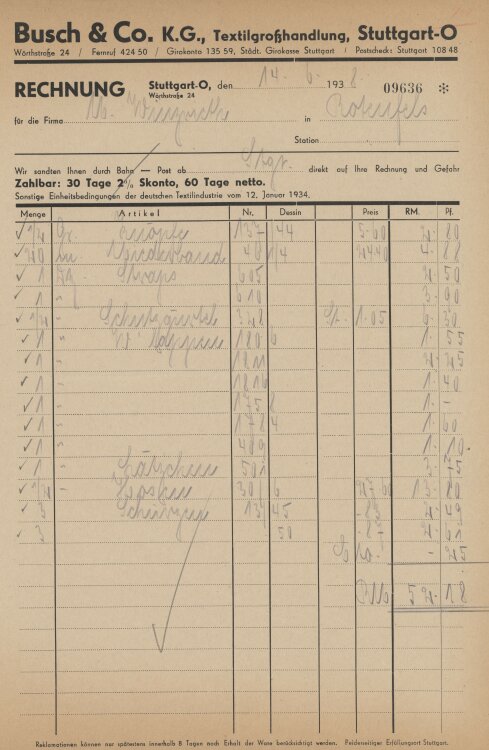 Busch & Co. K.G., Textilgroßhandlung, Stuttgart-O
Wörthstraße 24 / Fernruf 424 50 / Girokonto 135 59, Städt. Girokasse Stuttgart / Postscheck: Stuttgart 108 48
RECHNUNG Stuttgart-O, den 14. 6. 1938. 09636 *
Wörthstraße 24
für die Firma in Rotenfels
Station
Wir sandten Ihnen durch Bahn — Post ab Stgt. direkt auf Ihre Rechnung und Gefahr
Zahlbar: 30 Tage 2% Skonto, 60 Tage netto.
Sonstige Einheitsbedingungen der deutschen Textilindustrie vom 12. Januar 1934.
Menge Artikel Nr. Dessin Preis RM. Pf.
1/2 Gr. Knöpfe 137 44 5.60 2. 80
20 m Miederband 48 1/4 24.40 4. 88
1 Dz. Straps 605 2. 50
1 " 610 3. 90
1/2 " 328 St. 1.05 6. 30
1 " 180 6 1. 55
1 " 1811 2. 25
1 " 1816 1. 40
1 " 175 8 1. -
1 " 178 4 1. 60
1 " 489 1. 10
1 " Lätzchen 501 3. 75
1/2 " Hosen 301 6 27.60 13. 80
3 Schürzen 131 45 -.83 2. 49
3 50 -.87 2. 61
- 25
RM 52. 18
Reklamationen können nur spätestens innerhalb 8 Tagen nach Erhalt der Ware berücksichtigt werden. Beiderseitiger Erfüllungsort Stuttgart.